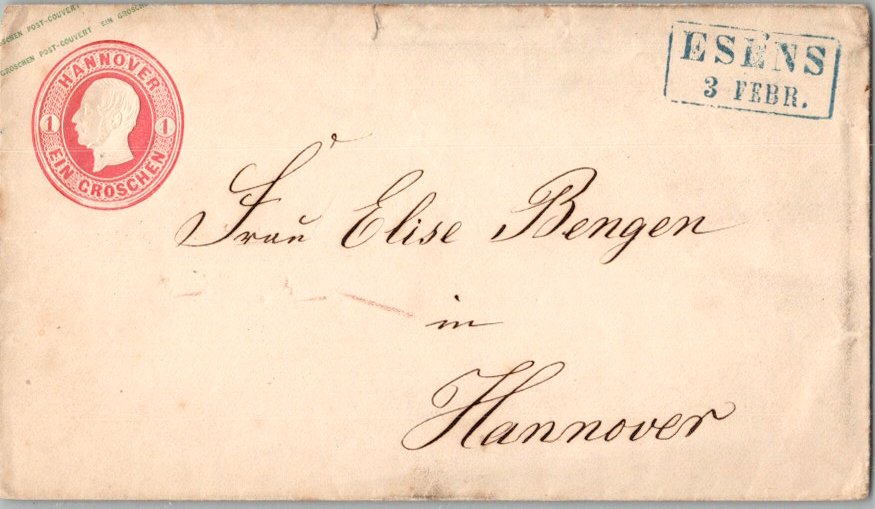 SCHEN POST-COUVERT EIN GROSCHEN
GROSCHEN POST-COUVERT EIN GROSCHE
HANNOVER
1 1
EIN GROSCHEN
ESENS
3 FEBR.
Frau Elise Bengen
in
Hannover